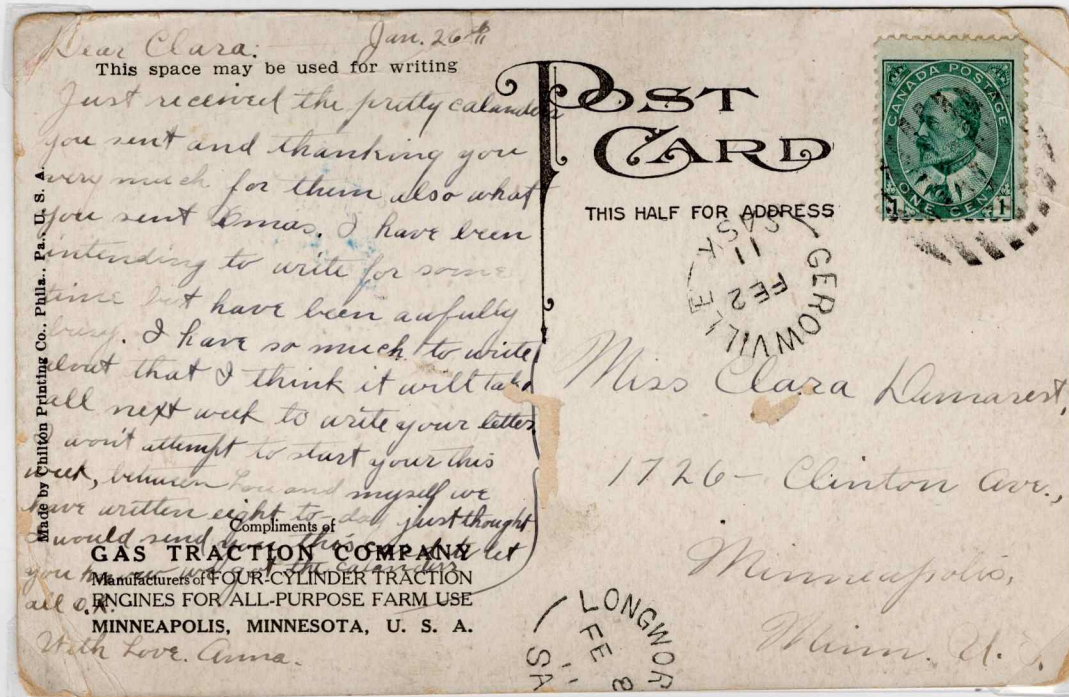 Dear Clara: Jan. 26th
This space may be used for writing
Just received the pretty calanders
you sent and thanking you
very much for them also what
you sent Xmas. I have been
intending to write for some
time but have been awfully
busy. I have so much to write
about that I think it will take
all next week to write your letter.
won't attempt to start your this
week, between Lou and myself we
have written eight to-day just thought
I would send you this card to let
you know we got the calanders
all O.K.
With Love. Anna.
Made by Chilton Printing Co., Phila., Pa., U. S. A.
Compliments of
GAS TRACTION COMPANY
Manufacturers of FOUR-CYLINDER TRACTION
ENGINES FOR ALL-PURPOSE FARM USE
MINNEAPOLIS, MINNESOTA, U. S. A.
POST
CARD
THIS HALF FOR ADDRESS
CANADA POSTAGE
ONE CENT
1 1
GEROWVILLE
FE 2
11
SASK
Miss Clara Demarest,
1726 - Clinton Ave.,
Minneapolis,
Minn. U.S.
LONGWOR
FE 8
11
SA